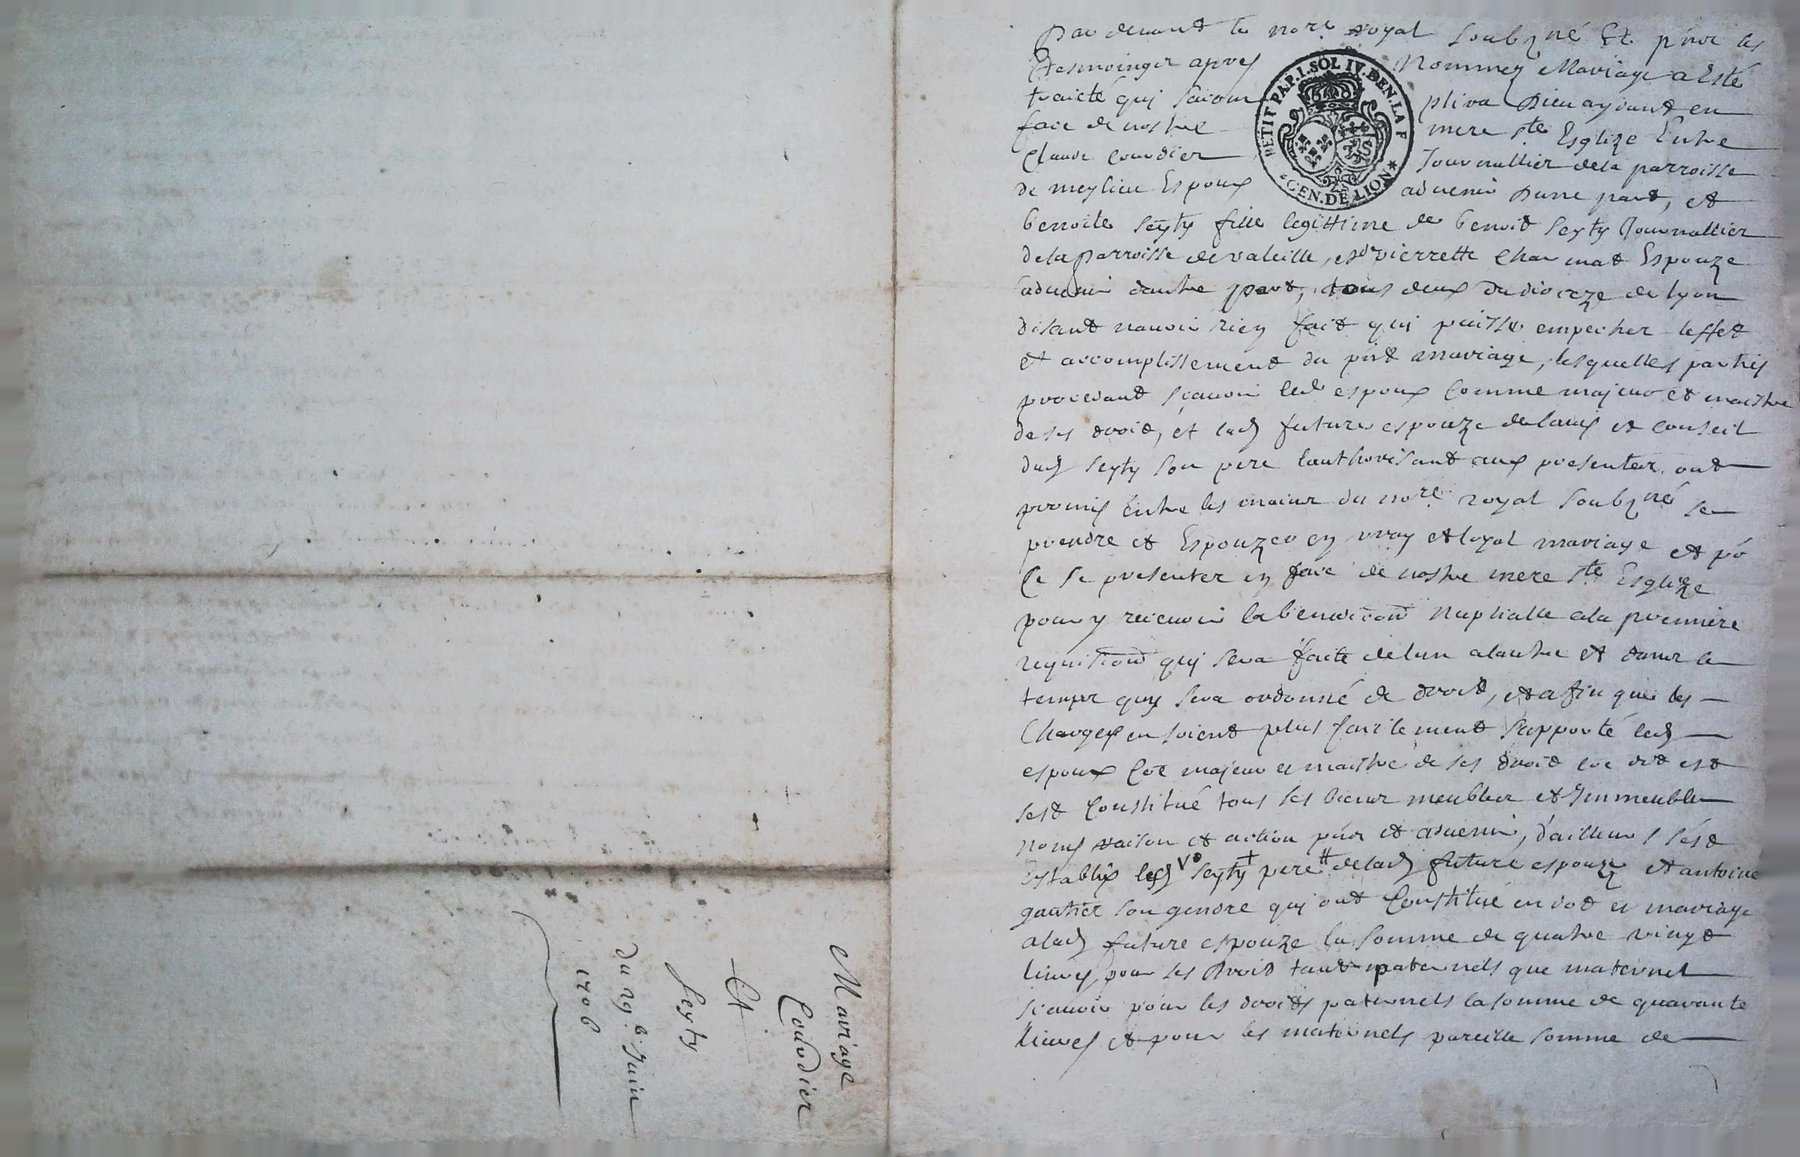 Mariage
Courdier
Et
Seyty
du 29e Juin
1706
PETIT PAP. I. SOL IV. DEN. LA F
GEN. DE LION
Pardevant le nore royal soubzné Et pnce les
tesmoingz apres Nommez Mariage a Esté
traicté quj saccom plira Dieu aydant en
face de nostre mere ste Esglize Entre
Claude Courdier Journallier de la parroisse
de meylieu Espoux aduenir Dune part, et
benoite Seyty fille legittime de benoit Seyty Journallier
de la parroisse de valeille, et pierrette Charmat Espouze
aduenir dautre part, tous deux du dioceze de lyon
disant nauoir rien fait quj puisse empecher leffet
et accomplissement du pnt mariage, lesquelles parties
procedant scauoir led espoux Comme majeur et maistre
de ses droit, et lad future espouze de lauis et conseil
dud Seyty son pere lauthorisant aux presentes, ont
promis Entre les mains du nore royal soubzné se
prendre et Espouzer en vray et loyal mariage et po
Ce se presenter en face de nostre mere ste Esglize
pour y receuoir la benediction Nuptialle a la premiere
requisition quj sera faite de lun a lautre et dans le
temps quj sera ordonné de droit, et afin que les
Charges en soient plus facilement Supporté led
espoux Coe majeur et maistre de ses droit
sest Constitué tous ses biens meubles et Immeubles
noms raison et action pnts et aduenir, d'ailleurs sest
Establis led Vd Seyty pere de lad future espouze et antoine
gautier son gendre quj ont Constitué en dot et mariage
a lad future espouze la somme de quatre vingt
liures pour ses Droit tant paternels que maternel
scauoir pour les droits paternels la somme de quarante
liures et pour les maternels pareille somme de